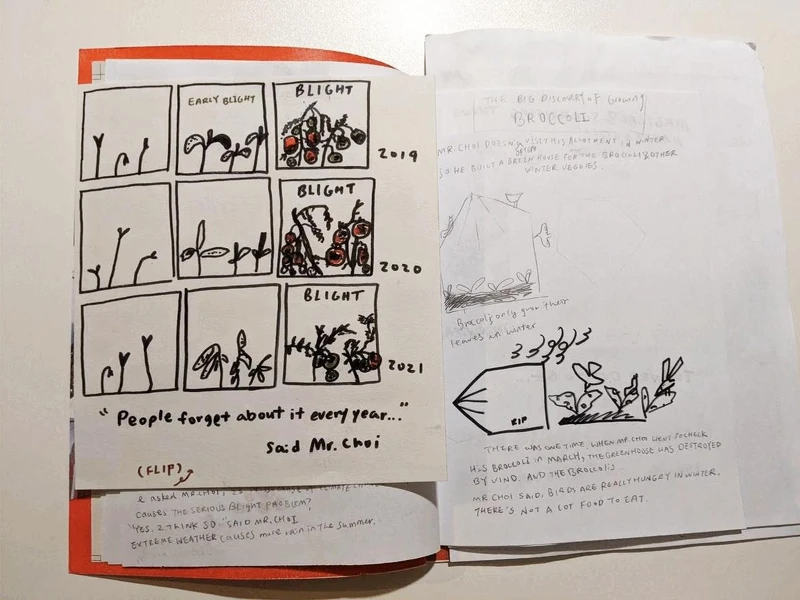 EARLY BLIGHT
BLIGHT
2019
BLIGHT
2020
BLIGHT
2021
"People forget about it every year..."
Said Mr. Choi
(FLIP)
asked MR. CHOI,
CAUSES THE SERIOUS BLIGHT PROBLEM?
"YES. I THINK SO" SAID MR. CHOI
EXTREME WEATHER CAUSES more rain in the summer.
THE BIG DISCORRY OF Growing
BROCCOLI
MR. CHOI DOESN'T VISIT HIS ALLOTMENT IN WINTER
often
SO HE BUILT A GREEN HOUSE FOR THE BROCOLI & OTHER
WINTER VEGGIES.
Brocolis only grow their
leaves in winter
RIP
THERE WAS ONE TIME, WHEN MR. CHOI WENT TO CHECK
HIS BROCCOLI IN MARCH, THE GREENHOUSE WAS DESTROYED
BY WIND. AND THE BROCOLIS
MR CHOI SAID, BIRDS ARE REALLY HUNGRY IN WINTER.
THERE'S NOT A LOT FOOD TO EAT.